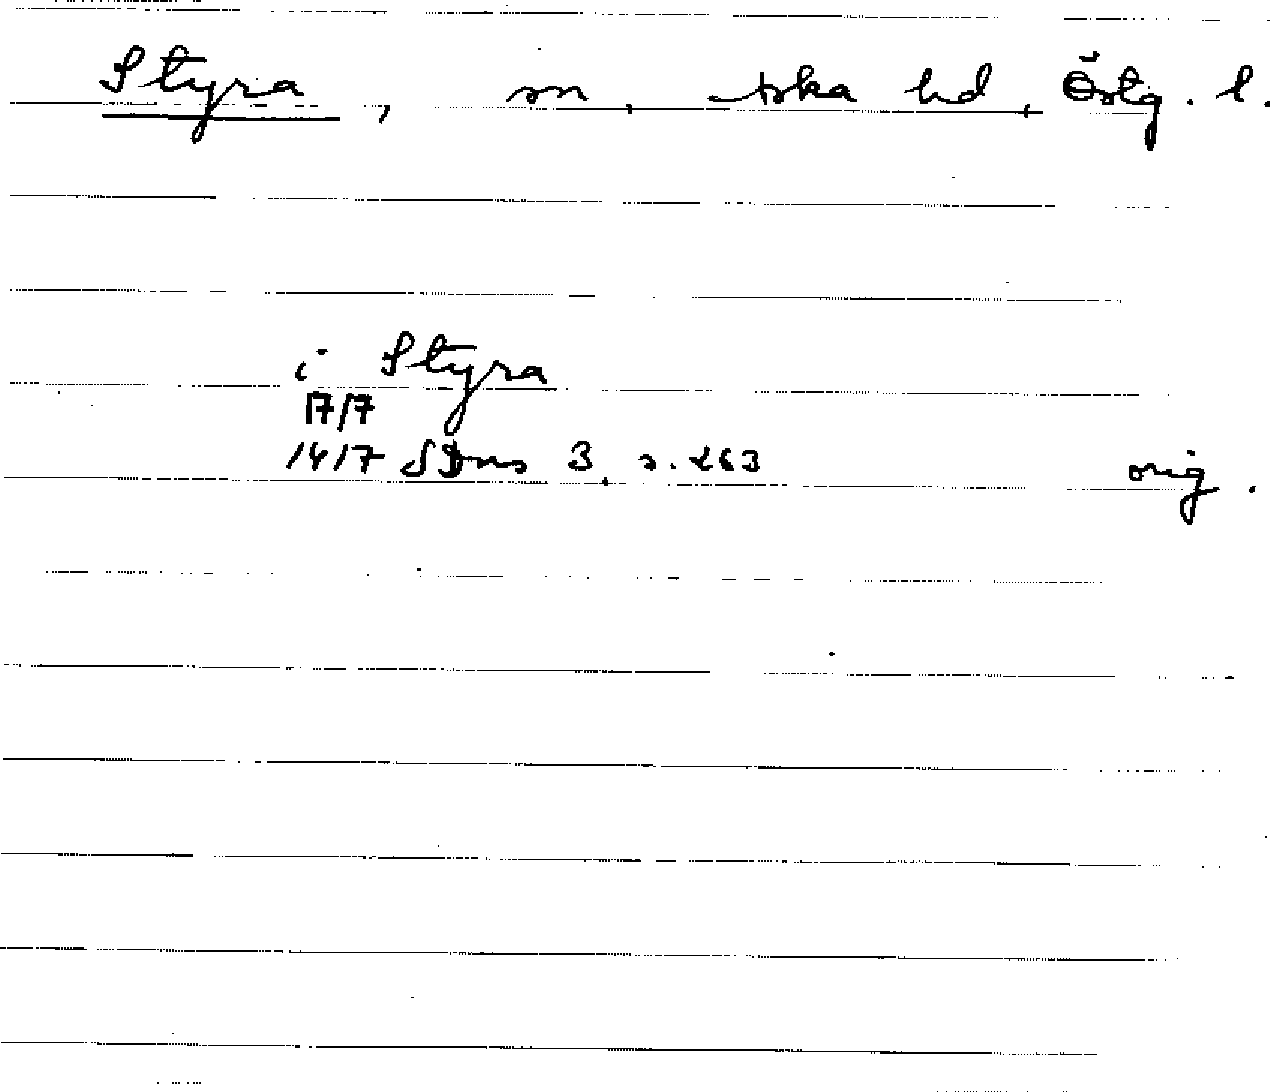 Styra, sn, Aska hd, Östg. l.
i Styra
17/7
1417 SDns 3, s. 263
orig.